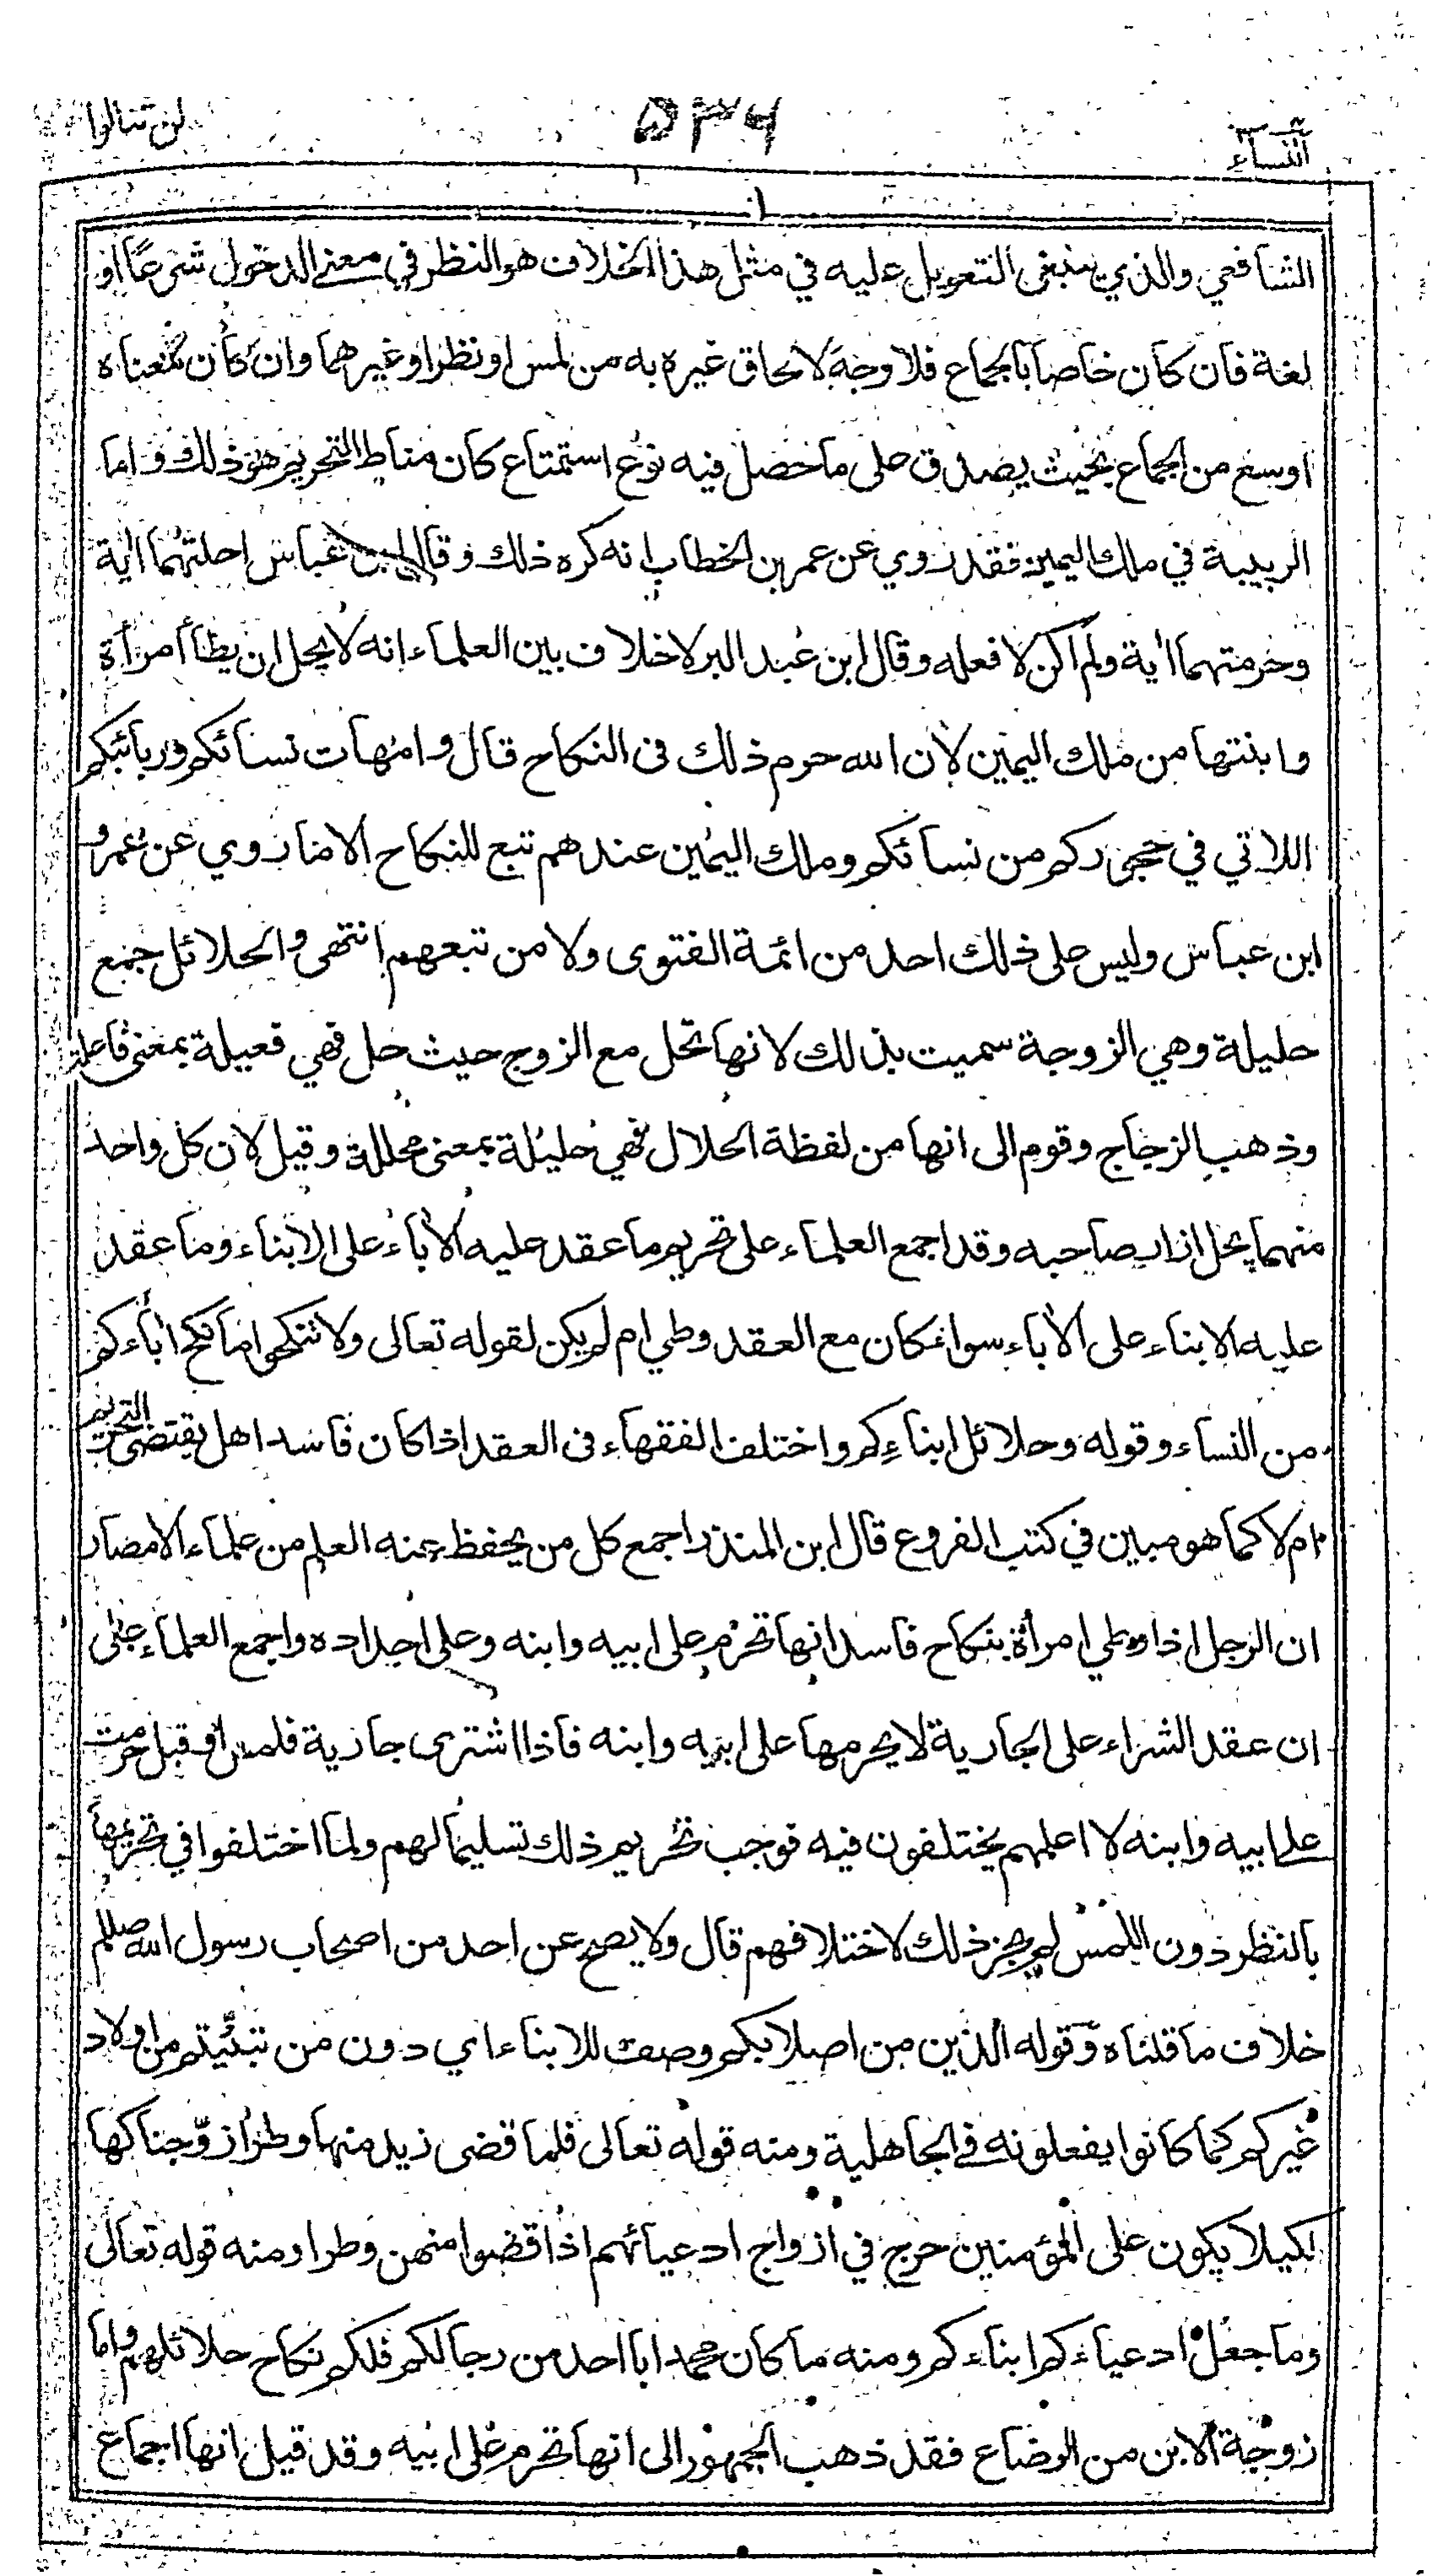 النساء ٥٣٦ لن تنالوا
الشافعي والذي ينبغي التعويل عليه في مثل هذا الخلاف هو النظر في معنى الدخول شرعا او
لغة فان كان خاصا بالجماع فلا وجه لالحاق غيره به من لمس او نظر او غيرهما وان كان معناه
اوسع من الجماع بحيث يصدق على ما حصل فيه نوع استمتاع كان مناط التحريم هو ذلك واما
الربيبة في ملك اليمين فقد روي عن عمر بن الخطاب انه كره ذلك وقال ابن عباس احلتهما اية
وحرمتهما اية ولم اكن لافعله وقال ابن عبد البر لا خلاف بين العلماء انه لا يحل ان يطأ امرأة
وابنتها من ملك اليمين لان الله حرم ذلك فى النكاح قال وامهات نسائكم وربائبكم
اللاتي في حجوركم من نسائكم وملك اليمين عندهم تبع للنكاح الا ما روي عن عمر و
ابن عباس وليس على ذلك احد من ائمة الفتوى ولا من تبعهم انتهى والحلائل جمع
حليلة وهي الزوجة سميت بذلك لانها تحل مع الزوج حيث حل فهي فعيلة بمعنى فاعلة
وذهب الزجاج وقوم الى انها من لفظة الحلال فهي حليلة بمعنى محللة وقيل لان كل واحد
منهما يحل ازار صاحبه وقد اجمع العلماء على تحريم ما عقد عليه الأباء على الابناء وما عقد
عليه الابناء على الأباء سواء كان مع العقد وطي ام لم يكن لقوله تعالى ولا تنكحوا ما نكح اباءكم
من النساء وقوله وحلائل ابناءكم واختلف الفقهاء فى العقد اذا كان فاسدا هل يقتضى التحريم
ام لا كما هو مبين في كتب الفروع قال ابن المنذر اجمع كل من يحفظ عنه العلم من علماء الامصار
ان الرجل اذا وطي امرأة بنكاح فاسد انها تحرم على ابيه وابنه وعلى اجداده واجمع العلماء على
ان عقد الشراء على الجارية لا يحرمها على ابيه وابنه فاذا اشترى جارية فلمس او قبل حرمت
على ابيه وابنه لا اعلمهم يختلفون فيه فوجب تحريم ذلك تسليما لهم ولما اختلفوا في تحريمها
بالنظر دون اللمس لم يجز ذلك لاختلافهم قال ولا يصح عن احد من اصحاب رسول الله صللم
خلاف ما قلناه وقوله الذين من اصلابكم وصف للابناء اي دون من تبنيتم من اولاد
غيركم كما كانوا يفعلونه في الجاهلية ومنه قوله تعالى فلما قضى زيد منها وطرا زوّجناكها
لكيلا يكون على المؤمنين حرج في ازواج ادعيائهم اذا قضوا منهن وطرا ومنه قوله تعالى
وما جعل ادعياءكم ابناءكم ومنه ما كان محمد ابا احد من رجالكم فلكم نكاح حلائلهم واما
زوجة الابن من الرضاع فقد ذهب الجمهور الى انها تحرم على ابيه وقد قيل انها اجماع